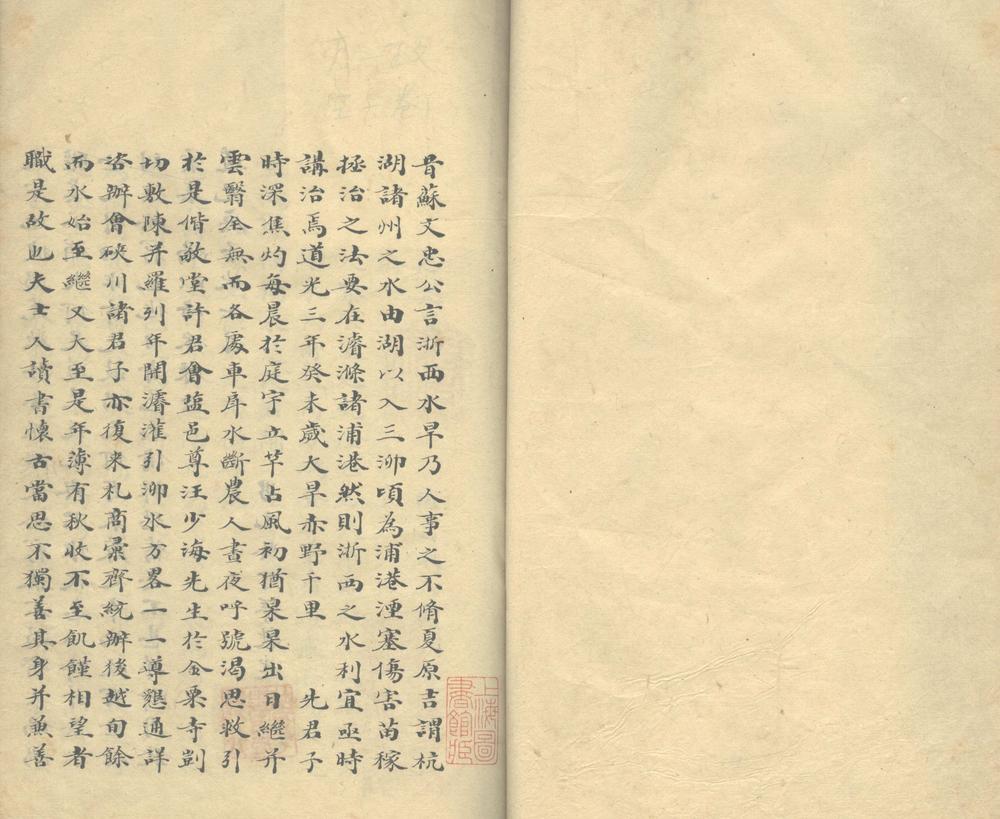 昔蘇文忠公言浙西水旱乃人事之不脩夏原吉謂杭
湖諸州之水由湖以入三泖頃為浦港湮塞傷害苗稼
拯治之法要在濬滌諸浦港然則浙西之水利宜亟時
講治焉道光三年癸未歲大旱赤野千里 先君子
時深焦灼每晨於庭宇立竿占風初猶杲杲出日繼并
雲翳全無而各處車戽水斷農人晝夜呼號渴思救引
於是偕敬堂許君會盐邑尊汪少海先生於金粟寺剴
切敷陳并羅列年開濬灌引泖水方畧一一導懇通詳
咨辦會硤川諸君子亦復来札商稟齊統辦後越旬餘
而水始至繼又大至是年薄有秋收不至飢饉相望者
職是故也夫士人讀書懷古當思不獨善其身并兼善
上海圖
書館藏